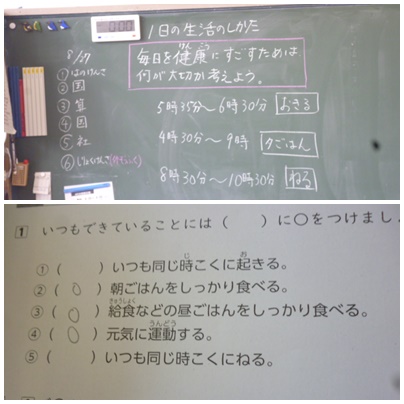 1日の生活のしかた
毎日を健康にすごすためは
何が大切か考えよう。
5時35分～6時30分 おきる
4時30分～9時 夕ごはん
8時30分～10時30分 ねる
8/27
②国
③算
④国
⑤社
1 いつもできていることには（ ）に○をつけまし
①（ ）いつも同じ時こくに起きる。
②（○）朝ごはんをしっかり食べる。
③（○）給食などの昼ごはんをしっかり食べる。
④（○）元気に運動する。
⑤（ ）いつも同じ時こくにねる。